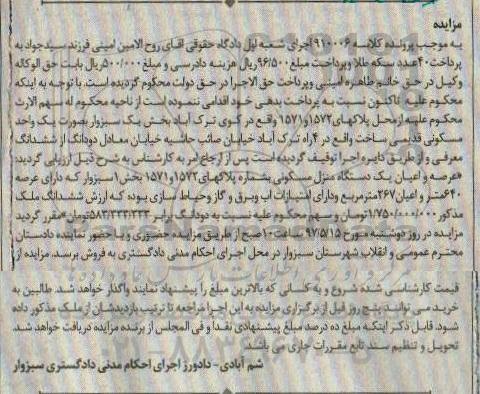 مزایده
به موجب پرونده کلاسه ۹۱۰۰۰۶ اجرای شعبه اول دادگاه حقوقی آقای روح الامین امینی فرزند سیدجواد به
پرداخت ۴۰ عدد سکه طلا و پرداخت مبلغ ۹۶/۵۰۰ ریال هزینه دادرسی و مبلغ ۵۰۰/۰۰۰ ریال بابت حق الوکاله
وکیل در حق خانم طاهره امینی و پرداخت حق الاجرا در حق دولت محکوم گردیده است. با توجه به اینکه
محکوم علیه تاکنون نسبت به پرداخت بدهی خود اقدامی ننموده است از ناحیه محکوم له سهم الارث
محکوم علیه از محل پلاکهای ۱۵۷۲ و ۱۵۷۱ واقع در کوی ترک آباد بخش یک سبزوار بصورت یک واحد
مسکونی قدیمی ساخت واقع در ۴ راه ترک آباد خیابان صائب حاشیه خیابان معادل دودانگ از ششدانگ
معرفی و از طریق دایره اجرا توقیف گردیده است پس از ارجاع امر به کارشناسی به شرح ذیل ارزیابی گردید:
«عرصه و اعیان یک دستگاه منزل مسکونی بشماره پلاکهای ۱۵۷۲ و ۱۵۷۱ بخش ۱ سبزوار که دارای عرصه
۶۴۰ متر و اعیان ۲۶۷ مترمربع و دارای امتیازات آب و برق و گاز و حیاط سازی بوده که ارزش ششدانگ ملک
مذکور ۱/۷۵۰/۰۰۰/۰۰۰ تومان و سهم محکوم علیه نسبت به دودانگ برابر ۵۸۳/۳۳۳/۳۳۳ تومان» مقرر گردید
مزایده در روز دوشنبه مورخ ۹۷/۵/۱۵ ساعت ۱۰ صبح از طریق مزایده حضوری و با حضور نماینده دادستان
محترم عمومی و انقلاب شهرستان سبزوار در محل اجرای احکام مدنی دادگستری به فروش برسد. مزایده از
قیمت کارشناسی شده شروع و به کسانی که بالاترین مبلغ را پیشنهاد نمایند واگذار خواهد شد. طالبین به
خرید می توانند پنج روز قبل از برگزاری مزایده به این اجرا مراجعه تا ترتیب بازدیدشان از ملک مذکور داده
شود. قابل ذکر اینکه مبلغ ده درصد مبلغ پیشنهادی نقداً و فی المجلس از برنده مزایده دریافت خواهد شد.
تحویل و تنظیم سند تابع مقررات جاری می باشد.
شم آبادی - دادورز اجرای احکام مدنی دادگستری سبزوار